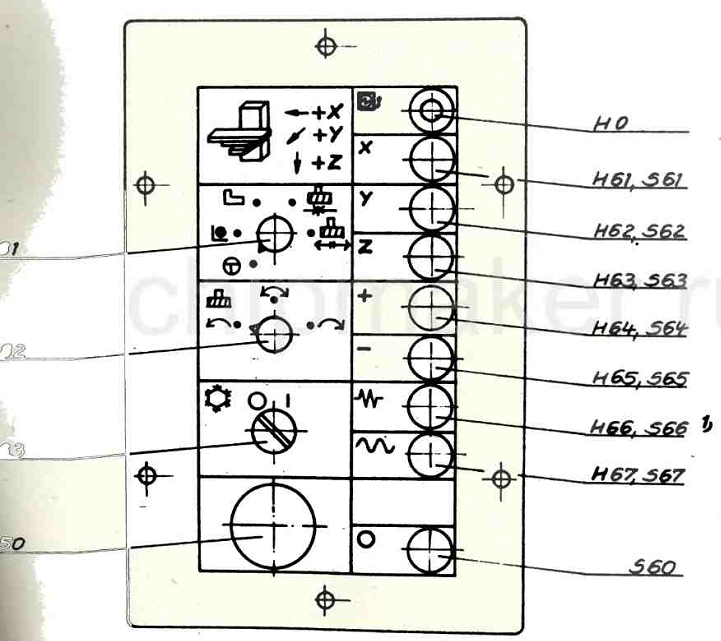 +X
+Y
+Z
X
Y
Z
+
-
O I
O
H0
H61, S61
H62, S62
H63, S63
H64, S64
H65, S65
H66, S66 1)
H67, S67
S60
chromaker.ru